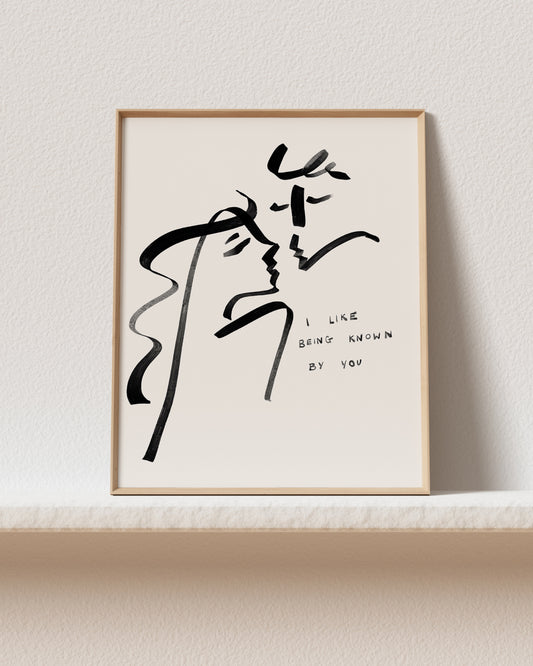 I LIKE
BEING KNOWN
BY YOU